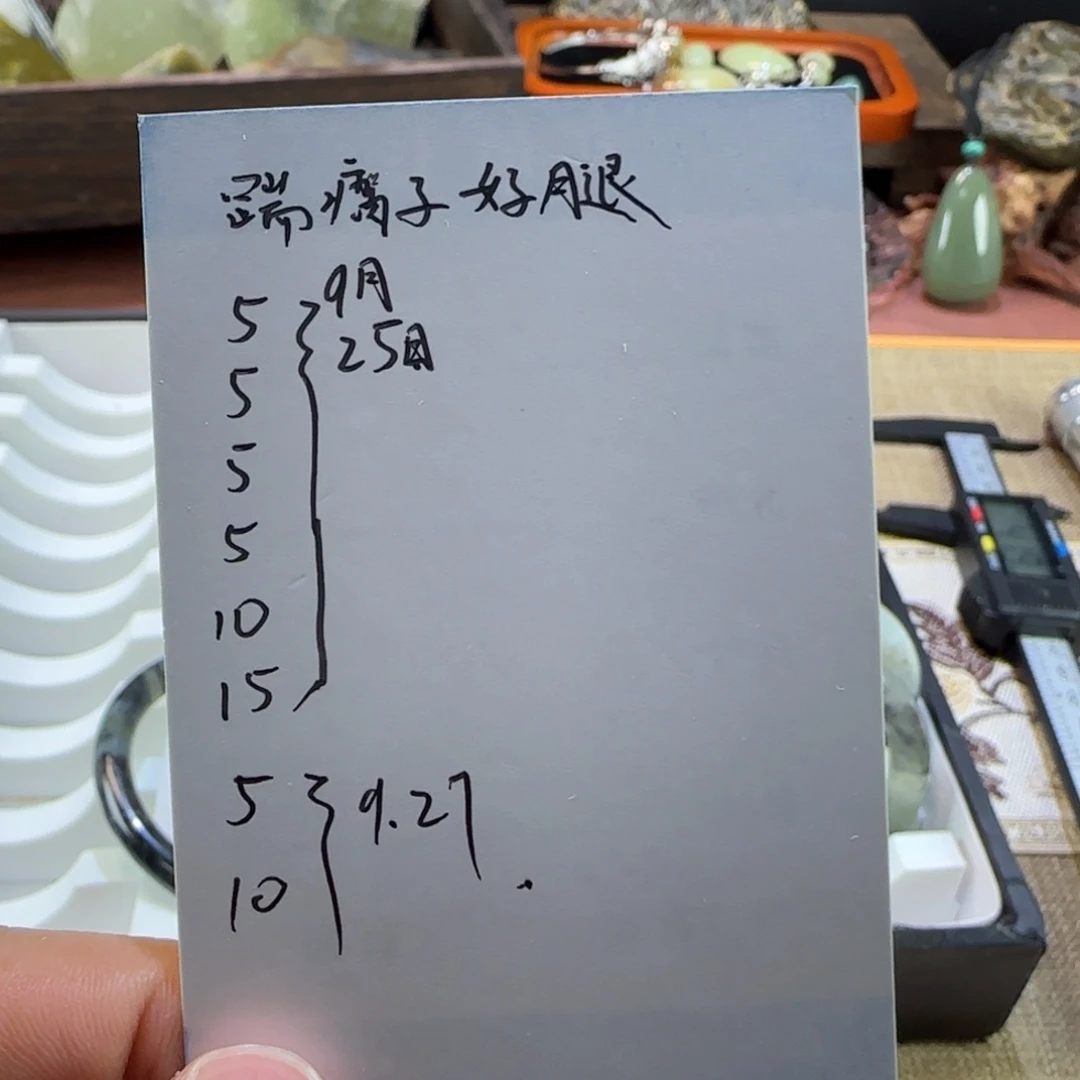 踹瘸子好腿
5 9月
25日
5
5
5
10
15
5 9.27
10